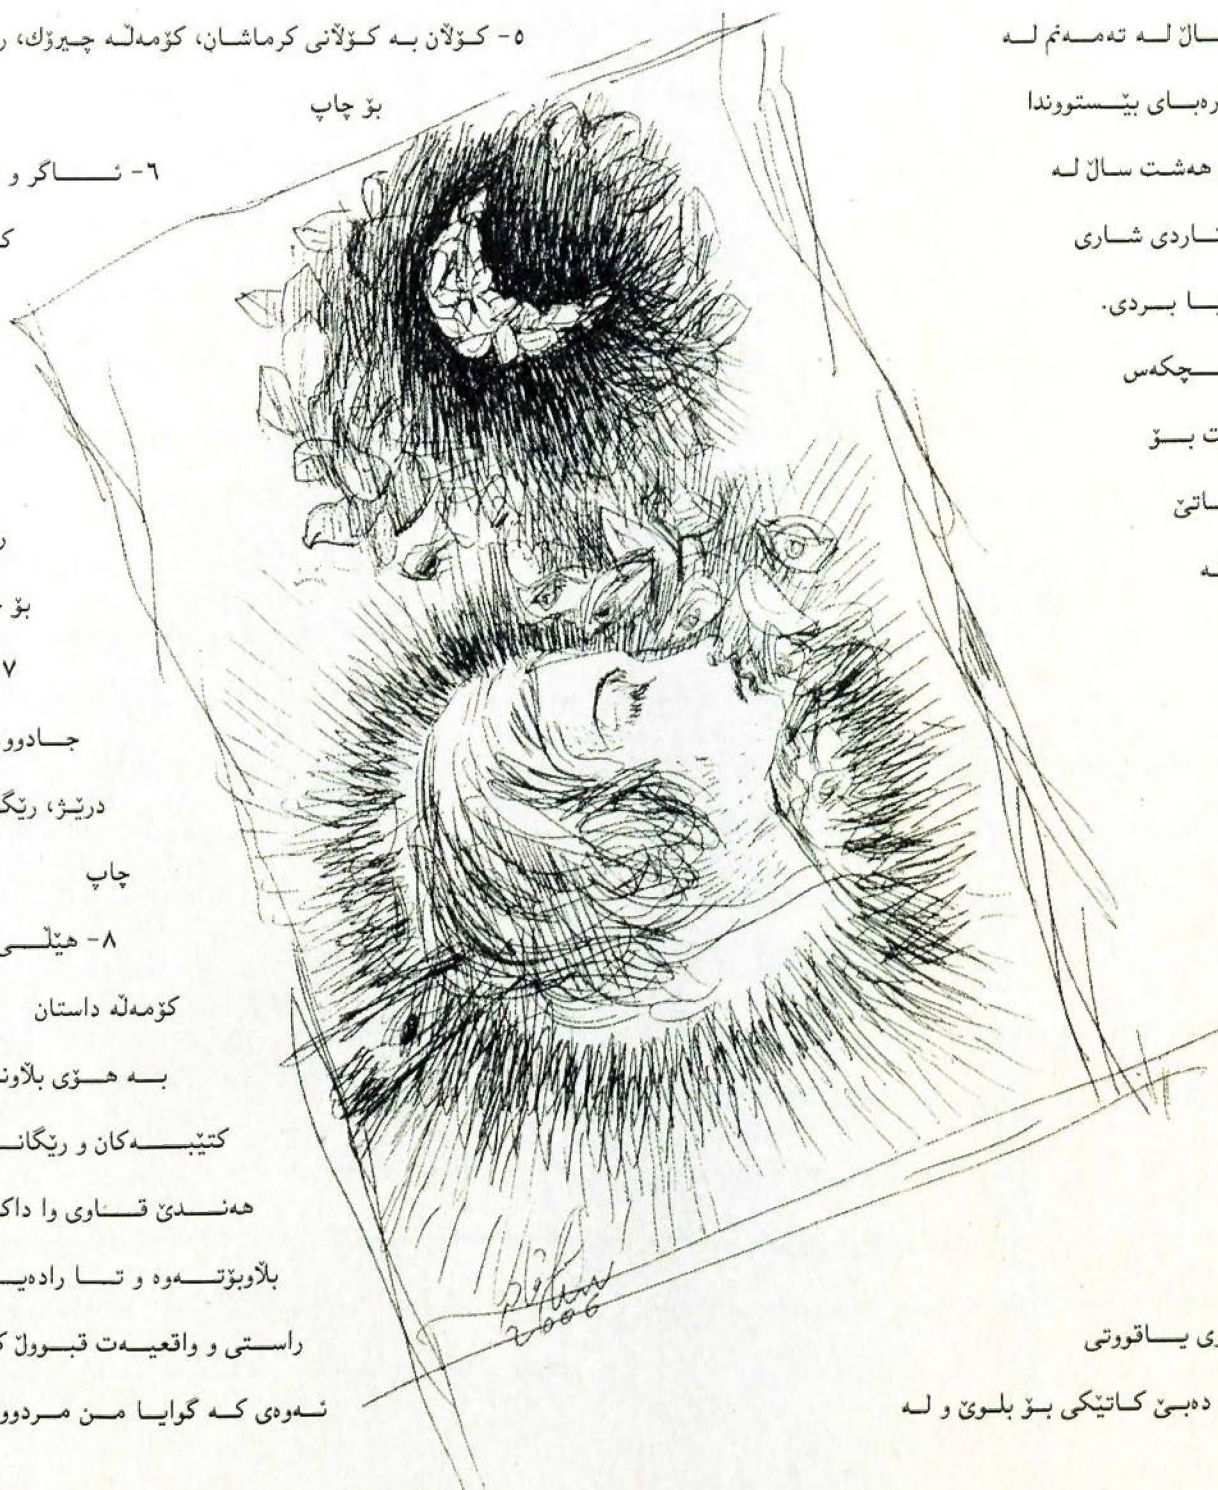 ـاڵ لـه تەمـەنم لـه
رەبـای بێـستووندا
هەشـت سـاڵ لـه
ـاردی شـاری
ـا بـردی.
ـچکەس
ت بـۆ
ـاتێ
ـە
ی یـاقووتی
دەبـێ کـاتێکی بـۆ بلـوێ و لـه
٥- کـۆڵان بـه کـۆڵانی کرماشـان، کۆمەڵـه چیـرۆك، ر
بۆ چاپ
٦- ئـاگر و
ک
ر
بۆ
٧
جـادوو
درێـژ، رێگ
چاپ
٨- هێڵـی
کۆمەڵه داستان
بـه هـۆی بڵاونـ
کتێبـەکان و رێگانـ
هەنـدێ قـاوی وا داکـ
بڵاوبۆتـەوە و تـا رادەیـ
راسـتی و واقعیـەت قبـووڵ ک
ئـەوەی کـه گوایـا مـن مـردوو
2006